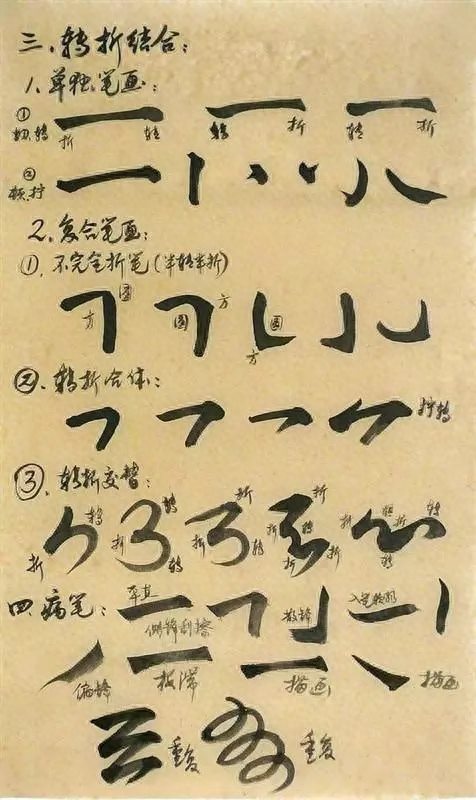 三、转折结合：
1.单独笔画：
① 折 转 转 折 转 折
② 顿、拧
2.复合笔画：
①.不完全折笔（半转半折）
方 圆 圆 方 圆 方
②.转折合体：
拧转
③.转折交替：
折 转 折 转 转 折 折 转 折 转 折 折 折 转 折 转 转
四.病笔：
侧锋刮擦 散锋
偏锋 板滞 描画 描画
重复 重复